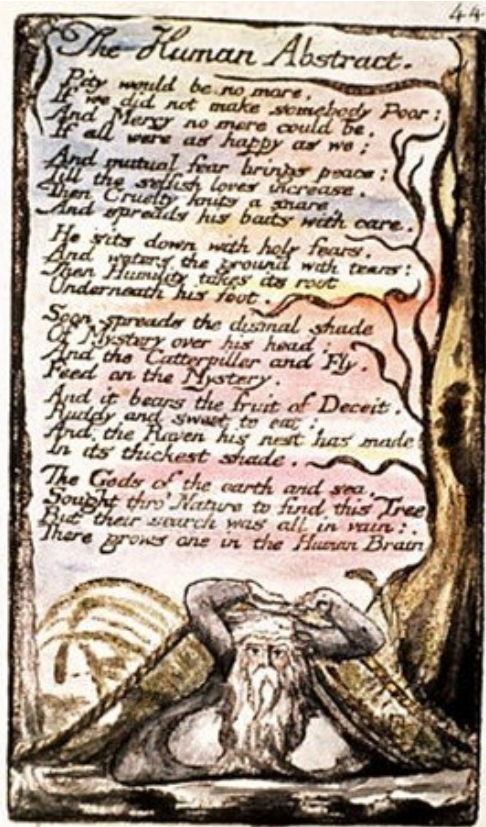 44
The Human Abstract.
Pity would be no more,
If we did not make somebody Poor:
And Mercy no more could be,
If all were as happy as we;
And mutual fear brings peace:
Till the selfish loves increase.
Then Cruelty knits a snare
And spreads his baits with care.
He sits down with holy fears,
And waters the ground with tears:
Then Humility takes its root
Underneath his foot.
Soon spreads the dismal shade
Of Mystery over his head;
And the Catterpiller and Fly,
Feed on the Mystery.
And it bears the fruit of Deceit,
Ruddy and sweet to eat:
And the Raven his nest has made
In its thickest shade.
The Gods of the earth and sea,
Sought thro' Nature to find this Tree
But their search was all in vain:
There grows one in the Human Brain